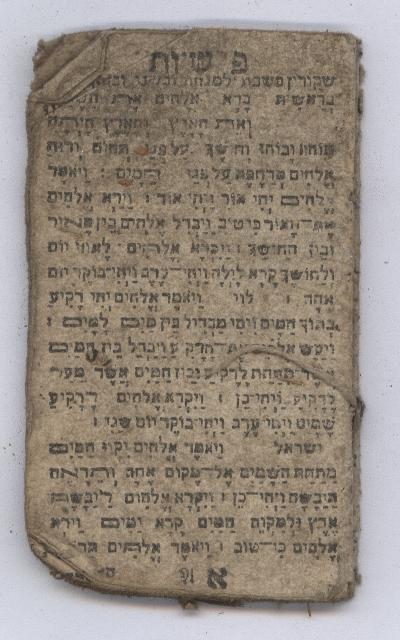 פרשיות
שקורין בשבת למנחה ובשני
בְּרֵאשִׁית בָּרָא אֱלֹהִים אֵת
וְאֵת הָאָרֶץ וְהָאָרֶץ הָיְתָה
תוהו ובוהו וְחֹשֶׁךְ עַל פְּנֵי תְהוֹם וְרוּחַ
אֱלֹהִים מְרַחֶפֶת עַל פְּנֵי הַמָּיִם : וַיֹּאמֶר
אֱלֹהִים יְהִי אוֹר וַיְהִי אוֹר : וַיַּרְא אֱלֹהִים
אֶת הָאוֹר כִּי טוֹב וַיַּבְדֵּל אֱלֹהִים בֵּין הָאוֹר
וּבֵין הַחוֹשֶׁךְ : וַיִּקְרָא אֱלֹהִים לָאוֹר יוֹם
וְלַחוֹשֶׁךְ קָרָא לָיְלָה וַיְהִי עֶרֶב וַיְהִי בוֹקֶר יוֹם
אֶחָד : לוי וַיֹּאמֶר אֱלֹהִים יְהִי רָקִיעַ
בְּתוֹךְ הַמַּיִם וִיהִי מַבְדִּיל בֵּין מַיִם לָמָיִם :
וַיַּעַשׂ אֱלֹהִים אֶת הָרָקִיעַ וַיַּבְדֵּל בֵּין הַמַּיִם
אֲשֶׁר מִתַּחַת לָרָקִיעַ וּבֵין הַמַּיִם אֲשֶׁר מֵעַל
לָרָקִיעַ וַיְהִי כֵן : וַיִּקְרָא אֱלֹהִים לָרָקִיעַ
שָׁמַיִם וַיְהִי עֶרֶב וַיְהִי בוֹקֶר יוֹם שֵׁנִי :
ישראל וַיֹּאמֶר אֱלֹהִים יִקָּווּ הַמַּיִם
מִתַּחַת הַשָּׁמַיִם אֶל מָקוֹם אֶחָד וְתֵרָאֶה
הַיַּבָּשָׁה וַיְהִי כֵן : וַיִּקְרָא אֱלֹהִים לַיַּבָּשָׁה
אֶרֶץ וּלְמִקְוֵה הַמַּיִם קָרָא יַמִּים וַיַּרְא
אֱלֹהִים כִּי טוֹב : וַיֹּאמֶר אֱלֹהִים
א